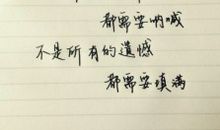 都需要呐喊
不是所有的遗憾
都需要填满